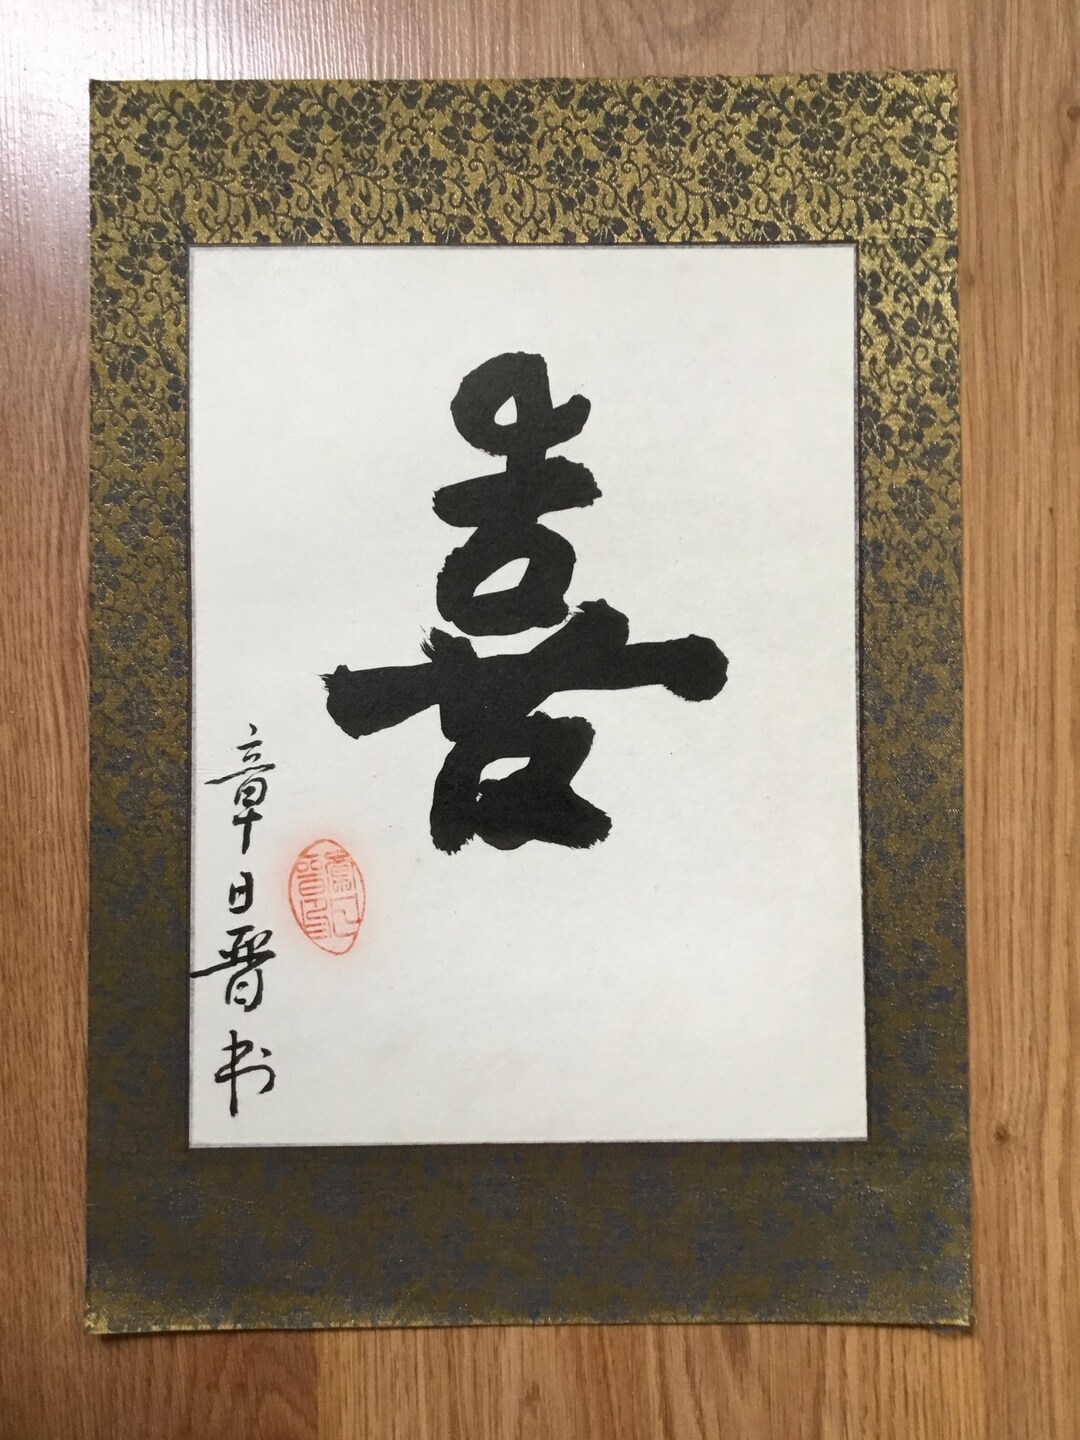 喜
章日晋书